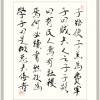 子路使子羔為費宰
子曰賊夫人之子子路
曰有民人焉有社稷
焉何必讀書然後為
學子曰是故惡夫佞者